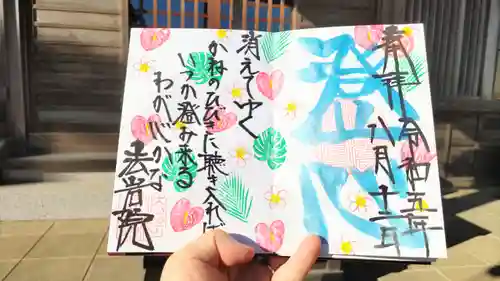 奉拝
令和五年
八月十一日
登
消えてゆく
かねのひびきに聴き入れば
いつか登み来る
わが心かな
法音院